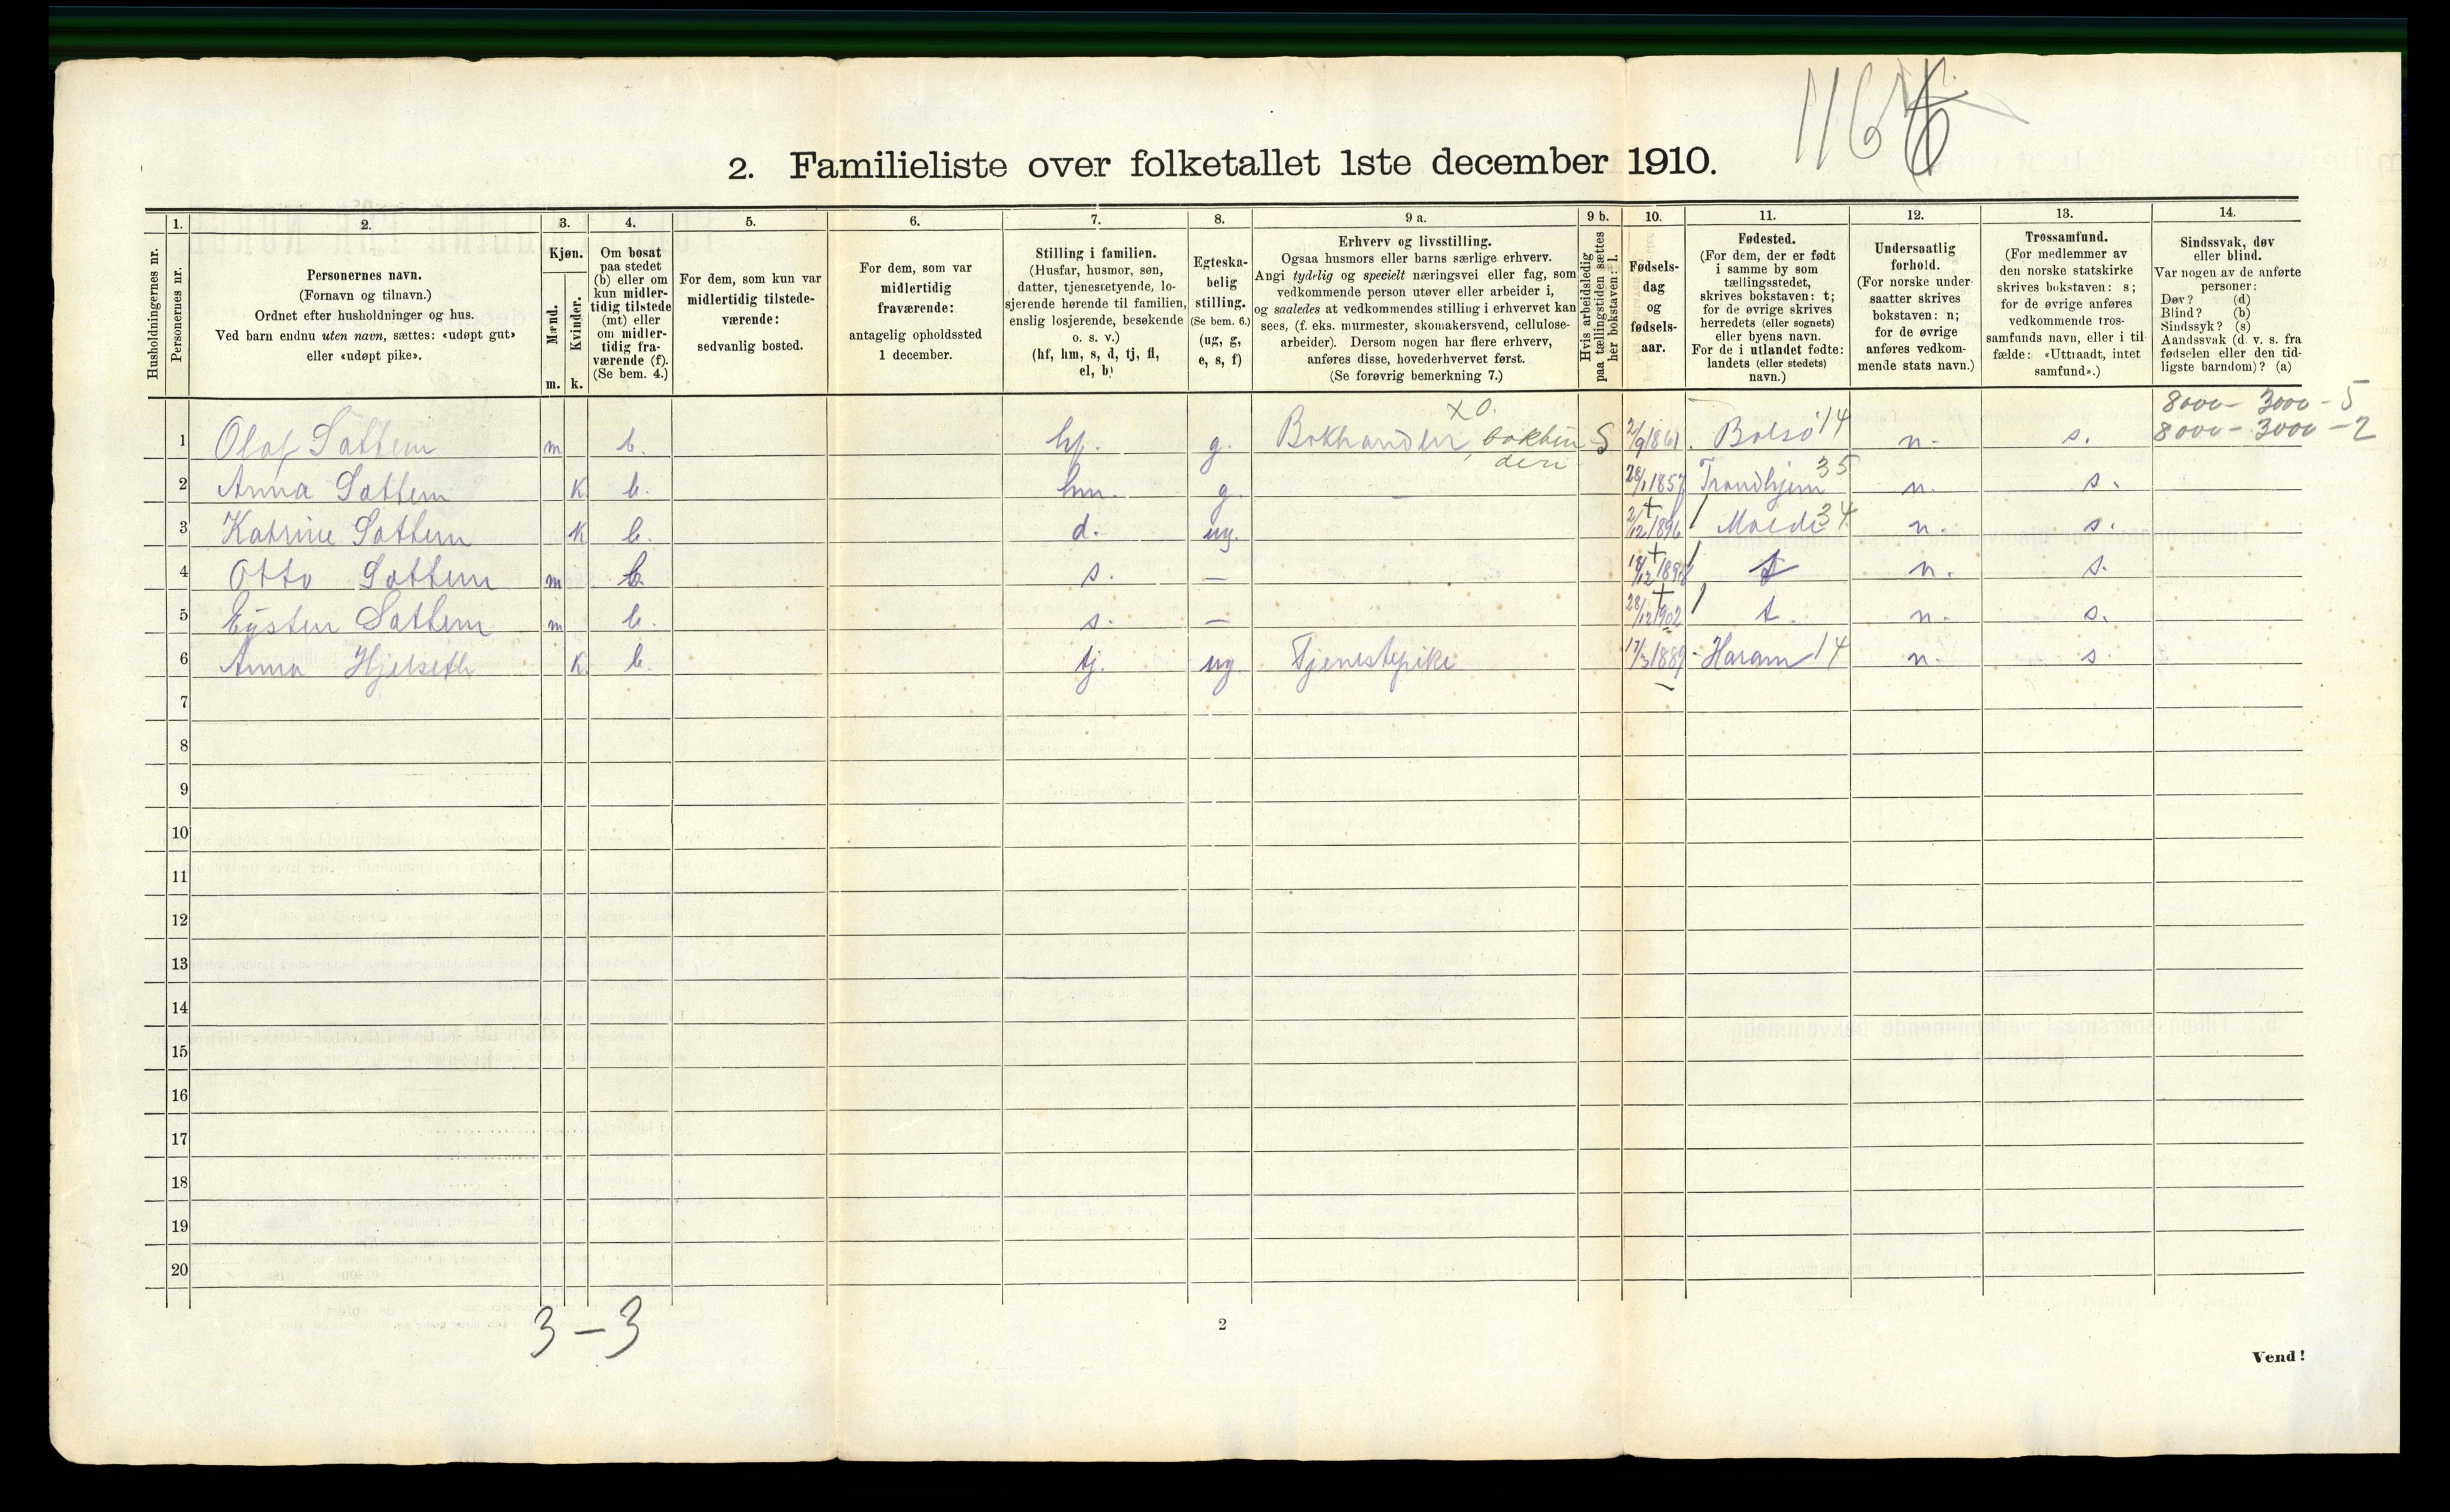 116
2. Familieliste over folketallet 1ste december 1910.
1. 2. 3. 4. 5. 6. 7. 8. 9 a. 9 b. 10. 11. 12. 13. 14.
Husholdningernes nr.
Personernes nr.
Personernes navn.
(Fornavn og tilnavn.)
Ordnet efter husholdninger og hus.
Ved barn endnu uten navn, sættes: «udøpt gut»
eller «udøpt pike».
Kjøn.
Mænd.
Kvinder.
m. k.
Om bosat
paa stedet
(b) eller om
kun midler-
tidig tilstede
(mt) eller
om midler-
tidig fra-
værende (f).
(Se bem. 4.)
For dem, som kun var
midlertidig tilstede-
værende:
sedvanlig bosted.
For dem, som var
midlertidig
fraværende:
antagelig opholdssted
1 december.
Stilling i familien.
(Husfar, husmor, søn,
datter, tjenestetyende, lo-
sjerende hørende til familien,
enslig losjerende, besøkende
o. s. v.)
(hf, hm, s, d, tj, fl,
el, b)
Egteska-
belig
stilling.
(Se bem. 6.)
(ug, g,
e, s, f)
Erhverv og livsstilling.
Ogsaa husmors eller barns særlige erhverv.
Angi tydelig og specielt næringsvei eller fag, som
vedkommende person utøver eller arbeider i,
og saaledes at vedkommendes stilling i erhvervet kan
sees, (f. eks. murmester, skomakersvend, cellulose-
arbeider). Dersom nogen har flere erhverv,
anføres disse, hovederhvervet først.
(Se forøvrig bemerkning 7.)
Hvis arbeidsledig
paa tællingstiden sættes
her bokstaven: l.
Fødsels-
dag
og
fødsels-
aar.
Fødested.
(For dem, der er født
i samme by som
tællingsstedet,
skrives bokstaven: t;
for de øvrige skrives
herredets (eller sognets)
eller byens navn.
For de i utlandet fødte:
landets (eller stedets)
navn.)
Undersaatlig
forhold.
(For norske under-
saatter skrives
bokstaven: n;
for de øvrige
anføres vedkom-
mende stats navn.)
Trossamfund.
(For medlemmer av
den norske statskirke
skrives bokstaven: s;
for de øvrige anføres
vedkommende tros-
samfunds navn, eller i til-
fælde: «Uttraadt, intet
samfund».)
Sindssvak, døv
eller blind.
Var nogen av de anførte
personer:
Døv? (d)
Blind? (b)
Sindssyk? (s)
Aandssvak (d. v. s. fra
fødselen eller den tid-
ligste barndom)? (a)
xo. 8000 - 3000 - 5
1 Olaf Sattem m b. hf. g. Bokhandler, bokbin S 2/9 1861 . Bolsö 14 n. s. 8000 - 3000 - 2
deri
2 Anna Sattem k b. hm. g. — 28/1 1857 Trondhjem 35 n. s.
3 Katrine Sattem k b. d. ug. 2/12 1896 Molde 34 n. s.
4 Otto Sattem m b. s. — t n. s.
5 Eysten Sattem m b. s. — 28/12 1902 t. n. s.
6 Anna Hjelseth k. b. tj. ug. Tjenestepike 17/3 1889 - Haram 14 n. s.
7
8
9
10
11
12
13
14
15
16
17
18
19
20
3 — 3
2
Vend!